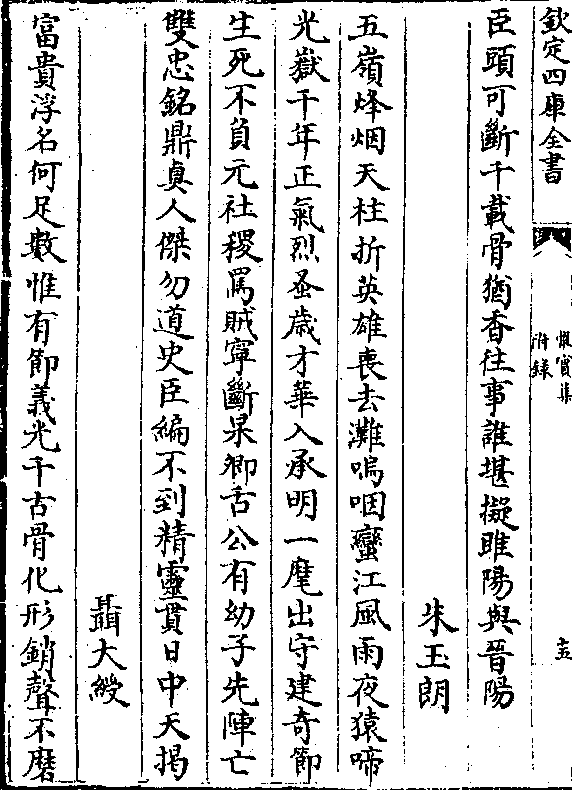 欽定四庫全書
懷賓集
附錄
十五
臣頭可斷千載骨猶香往事誰堪擬睢陽與晉陽
朱玉朗
五嶺烽烟天柱折英雄喪去灘嗚咽蠻江風雨夜猿啼
光嶽千年正氣烈蚤歲才華入承明一麾出守建竒節
生死不負元社稷罵賊寧斷杲卿舌公有幼子先陣亡
雙忠銘鼎真人傑勿道史臣編不到精靈貫日中天揭
聶大綬
富貴浮名何足數惟有節義光千古骨化形銷聲不磨